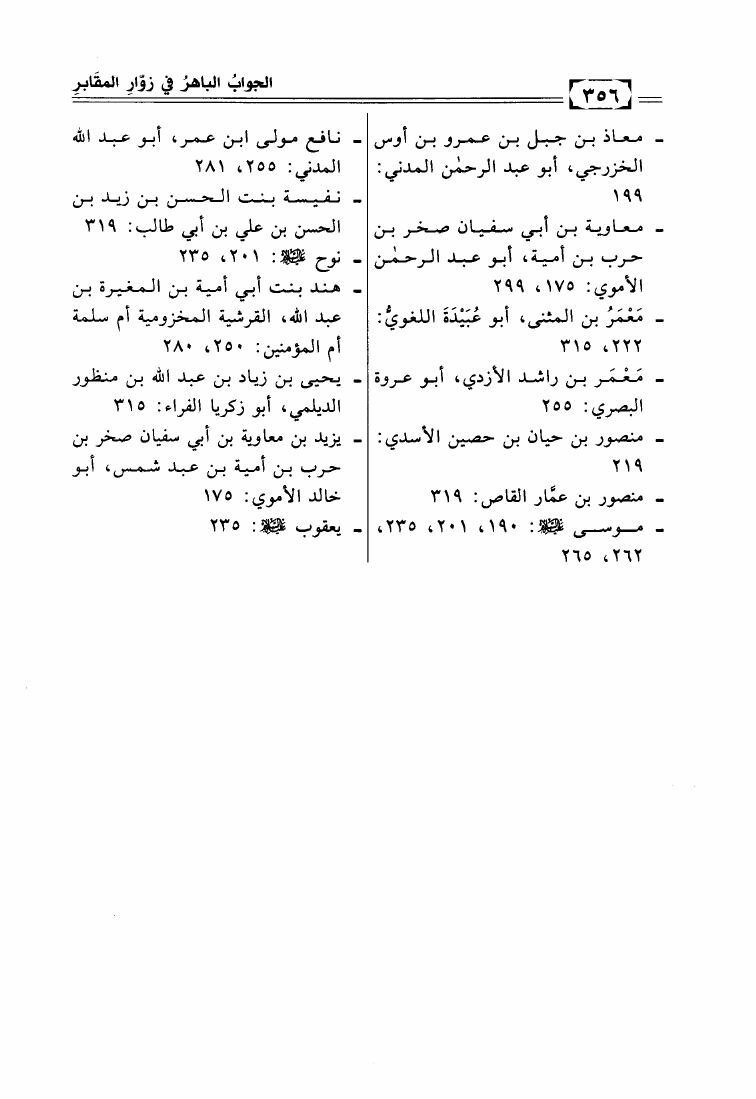 ٣٥٦
الجوابُ الباهرُ في زوّارِ المقَابرِ
ـ معاذ بن جبل بن عمرو بن أوس
الخزرجي، أبو عبد الرحمٰن المدني:
١٩٩
ـ معاوية بن أبي سفيان صخر بن
حرب بن أمية، أبو عبد الرحمٰن
الأموي: ١٧٥، ٢٩٩
ـ مَعْمَرُ بن المثنى، أبو عُبَيْدَةَ اللغويُّ:
٢٢٢، ٣١٥
ـ مَعْمَر بن راشد الأزدي، أبو عروة
البصري: ٢٥٥
ـ منصور بن حيان بن حصين الأسدي:
٢١٩
ـ منصور بن عمَّار القاص: ٣١٩
ـ موسى ﷺ: ١٩٠، ٢٠١، ٢٣٥،
٢٦٢، ٢٦٥
ـ نافع مولى ابن عمر، أبو عبد الله
المدني: ٢٥٥، ٢٨١
ـ نفيسة بنت الحسن بن زيد بن
الحسن بن علي بن أبي طالب: ٣١٩
ـ نوح ﷺ: ٢٠١، ٢٣٥
ـ هند بنت أبي أمية بن المغيرة بن
عبد الله، القرشية المخزومية أم سلمة
أم المؤمنين: ٢٥٠، ٢٨٠
ـ يحيى بن زياد بن عبد الله بن منظور
الديلمي، أبو زكريا الفراء: ٣١٥
ـ يزيد بن معاوية بن أبي سفيان صخر بن
حرب بن أمية بن عبد شمس، أبو
خالد الأموي: ١٧٥
ـ يعقوب ﷺ: ٢٣٥